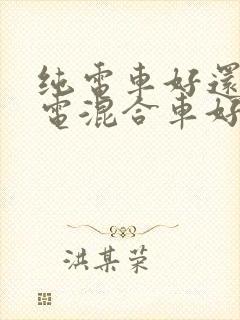 纯電車好還
電混合車好
洪某荣